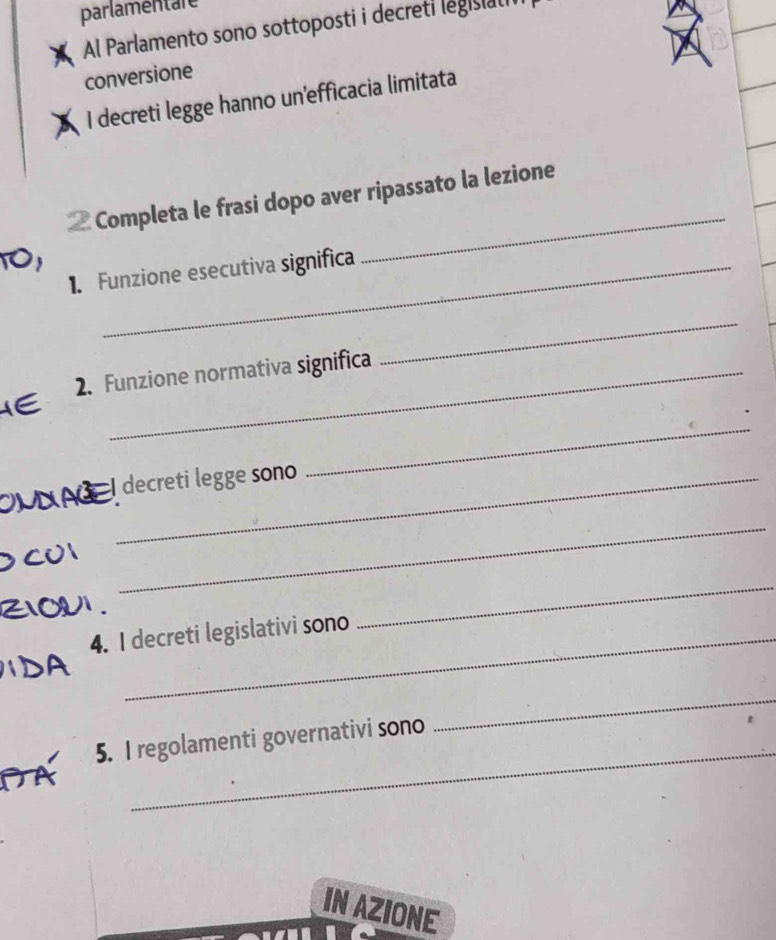 parlamentare
Al Parlamento sono sottoposti i decreti
conversione
I decreti legge hanno un'efficacia limitata
2 Completa le frasi dopo aver ripassato la lezione
TO,
1. Funzione esecutiva significa
2. Funzione normativa significa
HE
3. I decreti legge sono
O CUI
ZIONI.
4. I decreti legislativi sono
5. I regolamenti governativi sono
IN AZIONE